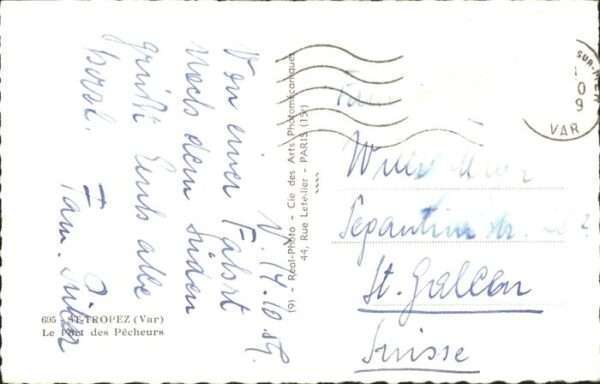 V. 14.10.59.
Von einer Fahrt
nach dem Süden
grüßt Euch alle
herzl.
Fam.
695 - ST-TROPEZ (Var)
Le Port des Pêcheurs
(9) - Réal-Photo - Cie des Arts Photomécaniques
44, Rue Letellier - PARIS (15e)
SUR-MER
0
9
VAR
Fam.
St. Gallen
Suisse